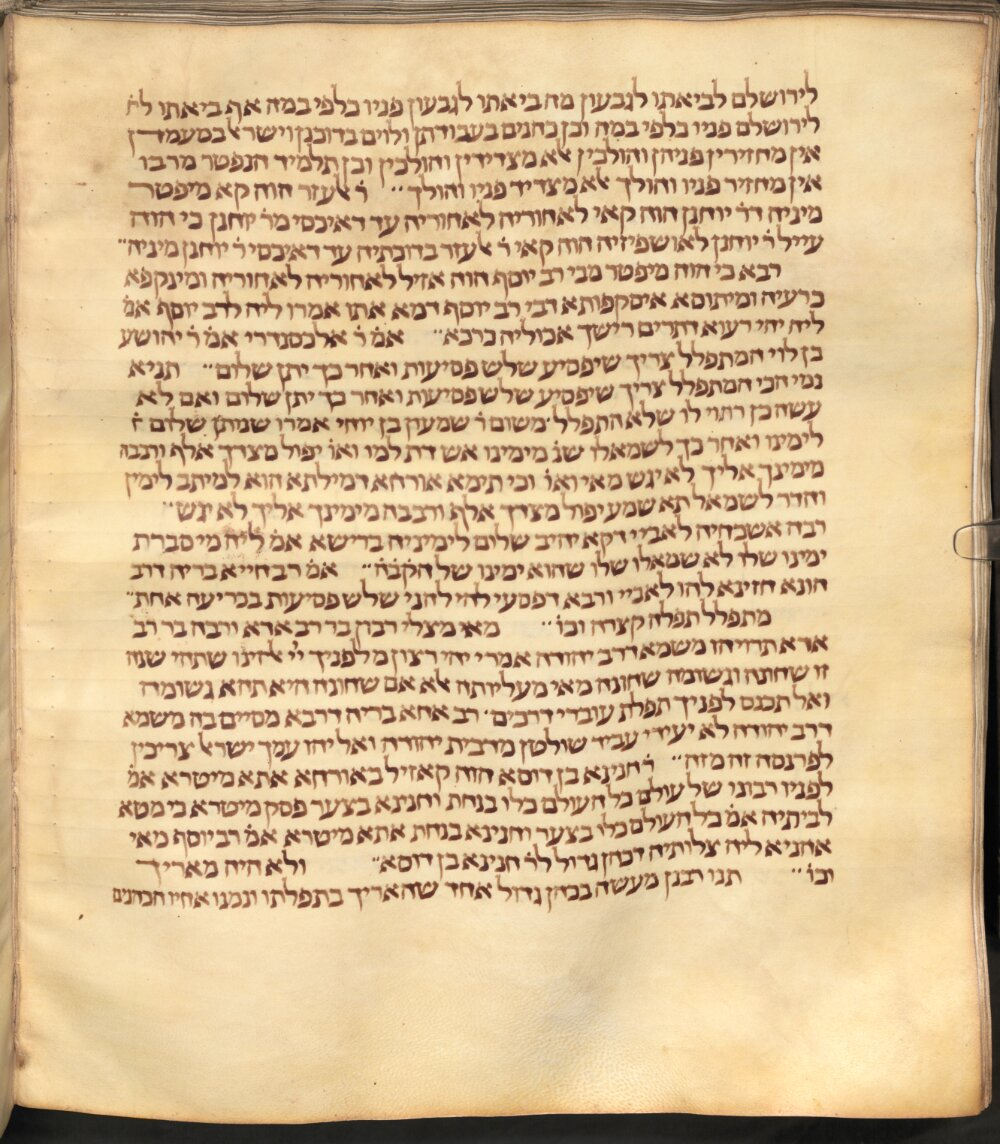 לירושלם לביאתו לגבעון מה ביאתו לגבעון פניו כלפי במה אף ביאתו לה̇
לירושלם פניו כלפי במה וכן כהנים בעבודתן ולוים בדוכנן וישרא̇ל במעמדן
אין מחזירין פניהן והולכין אלא מצדידין והולכין וכן תלמיד הנפטר מרבו
אין מחזיר פניו והולך אלא מצדיד פניו והולך ר̇ אלעזר הוה קא מיפטר
מיניה דר̇ יוחנן הוה קאי לאחוריה לאחוריה עד דאיכסי מר̇ יוחנן כי הוה
עייל ר̇ יוחנן לאושפיזיה הוה קאי ר̇ אלעזר בדוכתיה עד דאיכסי ר̇ יוחנן מיניה
רבא כי הוה מיפטר מבי רב יוסף הוה אזיל לאחוריה לאחוריה ומינקפא
כרעיה ומיתוסא איסקפותא דבי רב יוסף דמא אתו אמרו ליה לרב יוסף אמ̇
ליה יהי רעוא דתרים רישך אכוליה כרכא אמ̇ ר̇ אלכסנדרי אמ̇ ר̇ יהושע
בן לוי המתפלל צריך שיפסיע שלש פסיעות ואחר כך יתן שלום תניא
נמי הכי המתפלל צריך שיפסיע שלש פסיעות ואחר כך יתן שלום ואם לא
עשה כן רתוי לו שלא התפלל משום ר̇ שמעון בן יוחי אמרו שנותן שלום
לימינו ואחר כך לשמאלו שנ̇ מימינו אש דת למו ואו̇ יפול מצדך אלף ורבבה
מימינך אליך לא יגש מאי ואו̇ וכי תימא אורחא דמילתא הוא למיתב לימין
והדר לשמאל תא שמע יפול מצדך אלף ורבבה מימינך אליך לא יגש
רבה אשכחיה לאביי דקא יהיב שלום לימיניה ברישא אמ̇ ליה מי סברת
ימינו שלו לא שמאלו שלו שהוא ימינו של הקבה אמ̇ רב חייא בריה דרב
הונא חזינא להו לאביי ורבא דפסעי להו להני שלש פסיעות בכריעה אחת
מתפלל תפלה קצרה וכו̇ מאי מצלי רבין בר רב אדא ורבה בר רב
אדא תרויהו משמא דרב יהודה אמרי יהי רצון מלפניך ייי אלהינו שתהי שנה
זו שחונה וגשומה שחונה מאי מעליותה אלא אם שחונה היא תהא גשומה
ואל תכנס לפניך תפלת עוברי דרכים רב אחא בריה דרבא מסיים בה משמא
דרב יהודה לא יעידי עביד שולטן מדבית יהודה ואל יהו עמך ישראל צריכין
לפרנסה זה מזה ר̇ חנינא בן דוסא הוה קאזיל באורחא אתא מיטרא אמ̇
לפניו רבונו של עולם כל העולם כלו בנחת וחנינא בצער פסק מיטרא כי מטא
לביתיה אמ̇ כל העולם כלו בצער וחנינא בנחת אתא מיטרא אמ̇ רב יוסף מאי
אהניא ליה צלותיה דכהן גדול לר̇ חנינא בן דוסא ולא היה מאריך
וכו̇ תנו רבנן מעשה בכהן גדול אחד שהאריך בתפלתו ונמנו אחיו הכהנים